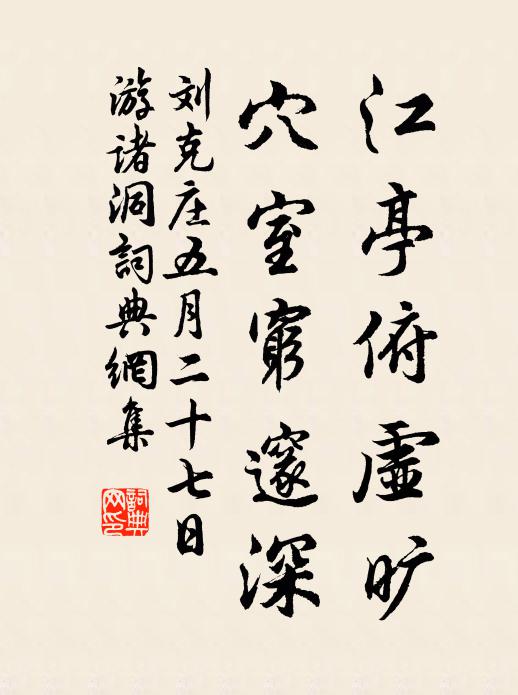 江亭俯虚旷
穴室窮邃深
刘克庄五月二十七日
游诸洞詞典網集
詞典
网印